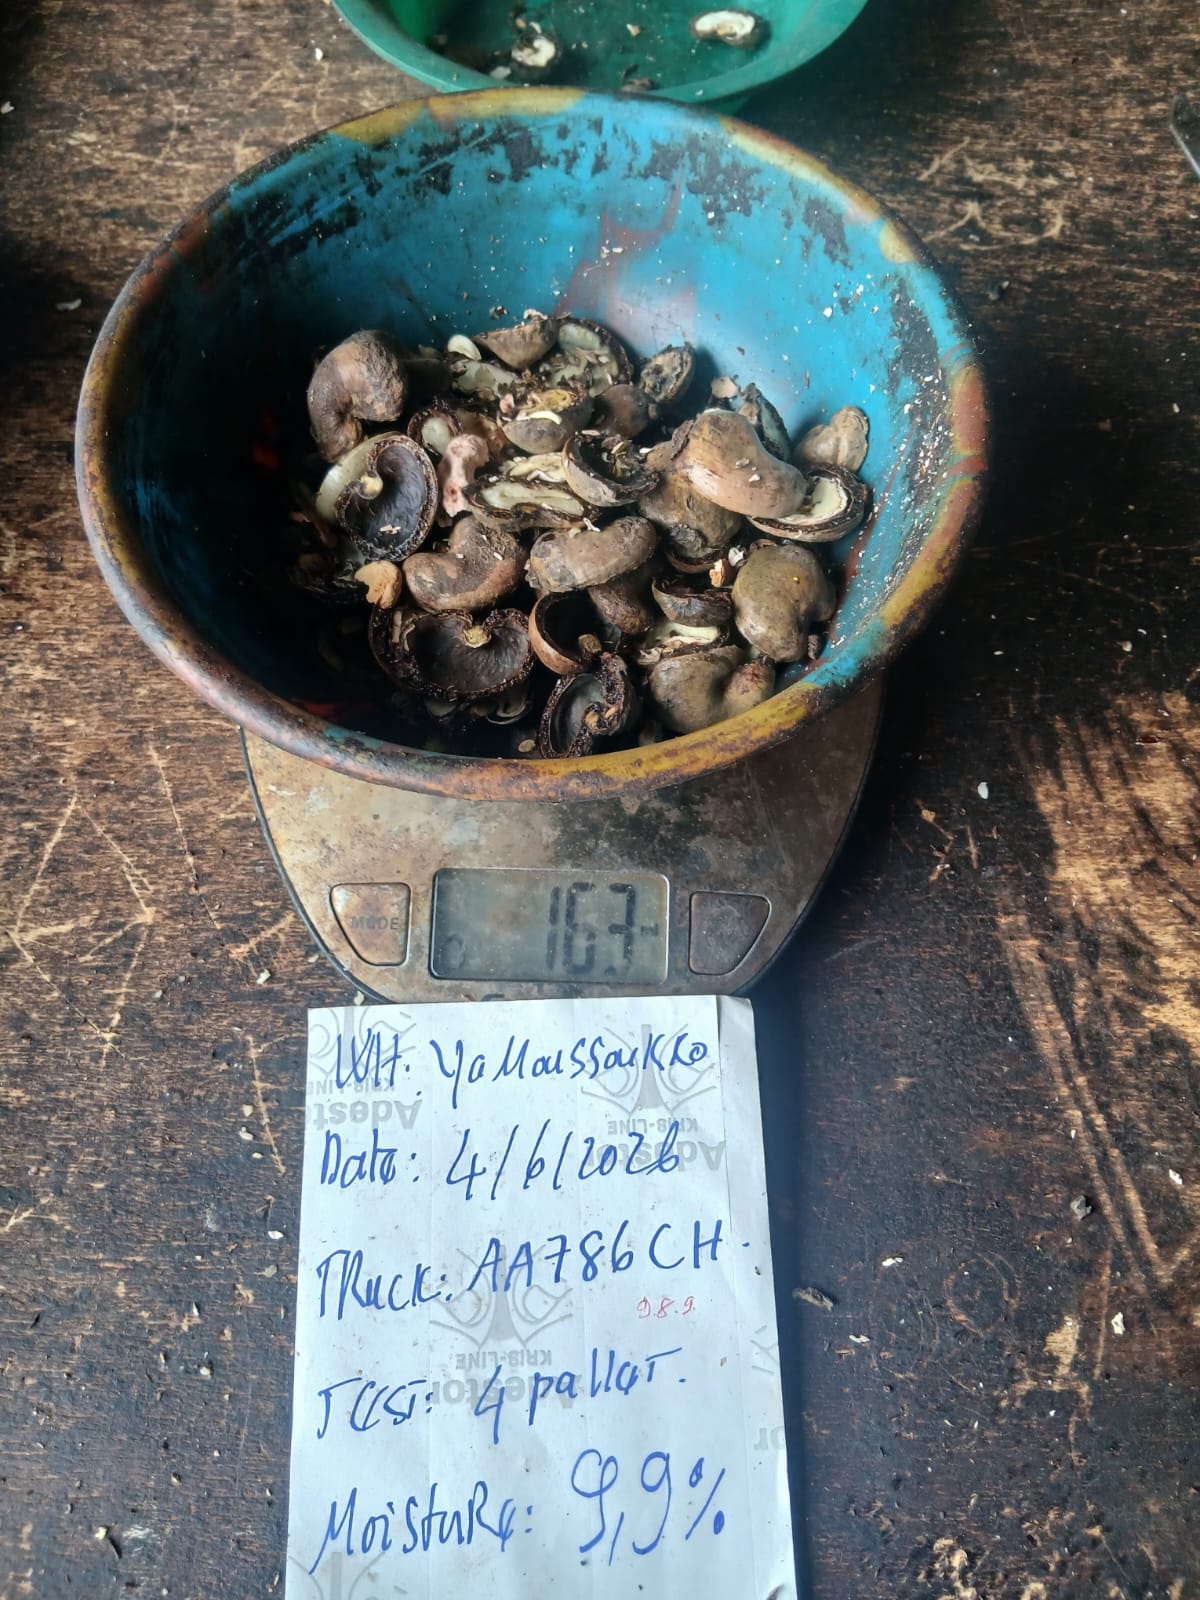 MODE
163
WH: YaMoussoukko
Date: 4/6/2026
TRuck: AA786CH.
9.8.9.
TEST: 4 pallet.
Moisture: 9,9%
Adestor
KRIS-LINE